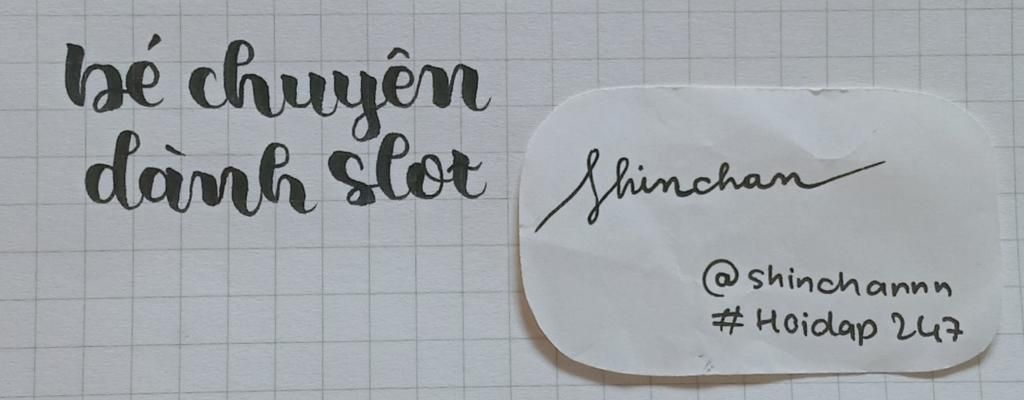 bé chuyên
dành slot
Shinchan
@shinchannn
# Hoidap 247